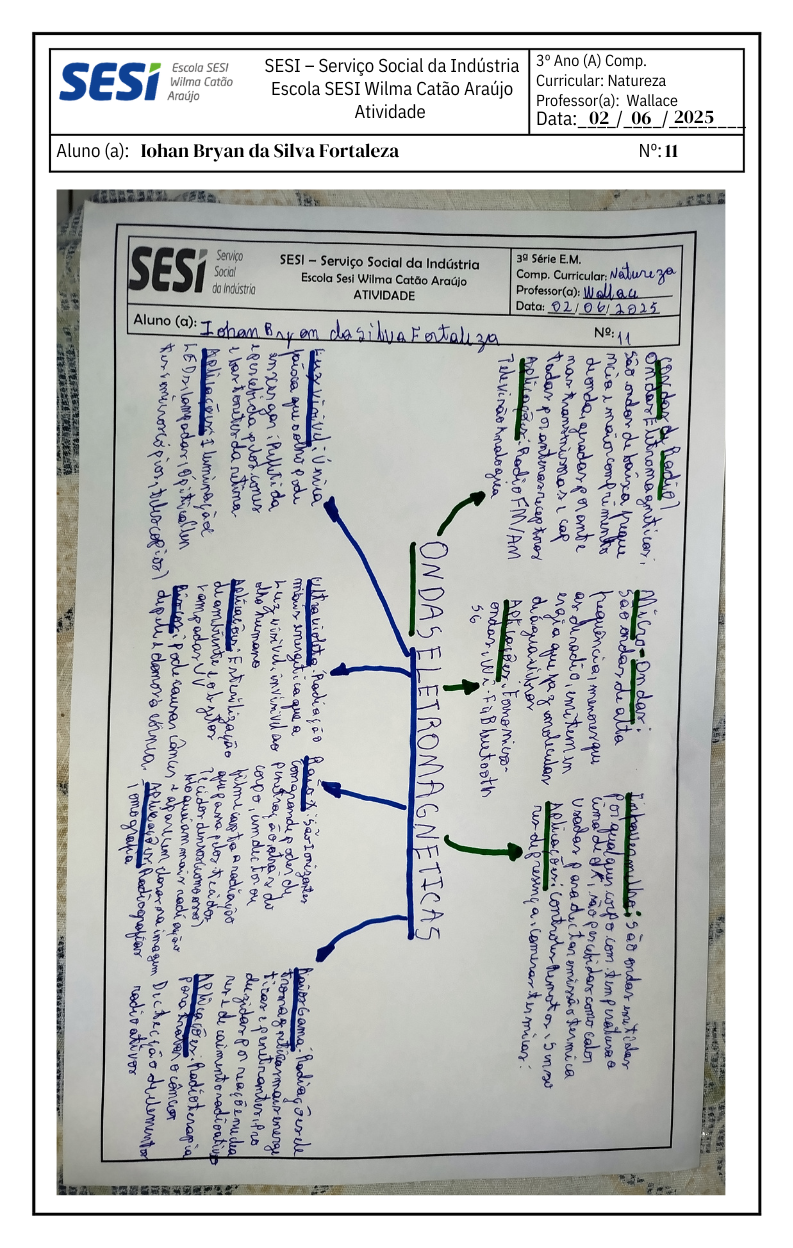 SESI
Escola SESI
Wilma Catão
Araújo
SESI – Serviço Social da Indústria
Escola SESI Wilma Catão Araújo
Atividade
3º Ano (A) Comp.
Curricular: Natureza
Professor(a): Wallace
Data: 02 / 06 / 2025
Aluno (a): Iohan Bryan da Silva Fortaleza
Nº: 11
SESI
Serviço
Social
da Indústria
SESI – Serviço Social da Indústria
Escola Sesi Wilma Catão Araújo
ATIVIDADE
3ª Série E.M.
Comp. Curricular: Natureza
Professor(a): Wallace
Data: 02/06/2025
Aluno (a): Iohan Bryan da Silva Fortaleza
Nº: 11
ONDAS ELETROMAGNETICAS
(ondas de Radio)
Ondas Eletromagnéticas,
são ondas de baixa freque
ncia e maior comprimento
de onda, geradas por ante
nas transmissoras e cap
tadas por antenas receptoras
Aplicações: Radio FM/AM
Televisão Analogica
Micro-Ondas:
São ondas de alta
frequência, menores que
as de radio, emitem en
ergia que faz moleculas
de água vibrar
Aplicações: Forno micro-
ondas, Wi-Fi, Bluetooth
5G
Infravermelho: São ondas emitidas
por qualquer corpo com temperatura a
cima de 0K, são percebidas como calor
usadas para dectar emissão termica
Aplicações: controles Remotos, Senso
res de presença, Cameras termicas.
Luz visivel: Única
faixa que o olho pode
enxergar. Refletida
e percebida pelos cones
e bastonetes da retina
Aplicações: Iluminação
LEDs, lampadas,
microscópios, telescopios)
Ultravioleta: Radiação
mais energetica que a
Luz visivel, invisivel ao
olho humano
Aplicações: Esterilização
de ambiente e objetos
Lampadas UV
Riscos: Pode causar câncer
de pele e danos a córnea.
Raio X: São Ionizantes
com grande poder de
penetração atraves do
corpo, um dector ou
filme capta a radiação
que passa pelos tecidos
Tecidos densos (como osso)
bloqueiam mais radiação
e aparecem claros na imagem
Aplicações: Radiografias
Tomografia
Raios Gama: Radiações ele
tromagnéticas mais energe
ticas e penetrantes, Pro
duzidas por reações nuclea
res e decaimento radioativo
Aplicações: Radioterapia
para tratar o câncer
Dectecção de elementos
radioativos